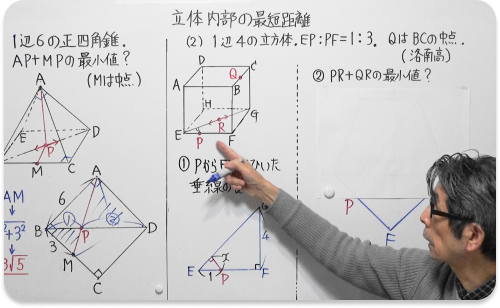 立体内部の最短距離
1辺6の正四角錐.
AP+MPの最小値?
(Mは中点)
A
E
D
P
M
C
A
6
B
①
②
P
D
3
M
C
AM
3√5
(2) 1辺4の立方体. EP:PF=1:3. QはBCの中点.
(洛南高)
D
C
Q
A
B
H
G
E
R
P
F
① Pから
垂線の
G
4
x
E
1
P
F
② PR+QRの最小値?
P
F
E